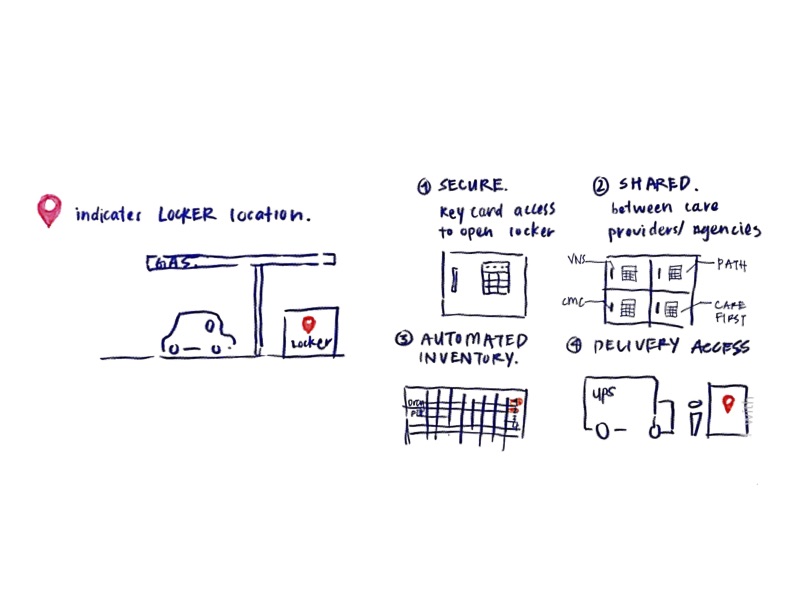 indicates LOCKER location.
GAS.
Locker
① SECURE.
key card access
to open locker
② SHARED.
between care
providers/agencies
VNS
PATH
CMC
CARE
FIRST
③ AUTOMATED
INVENTORY.
④ DELIVERY ACCESS
UPS